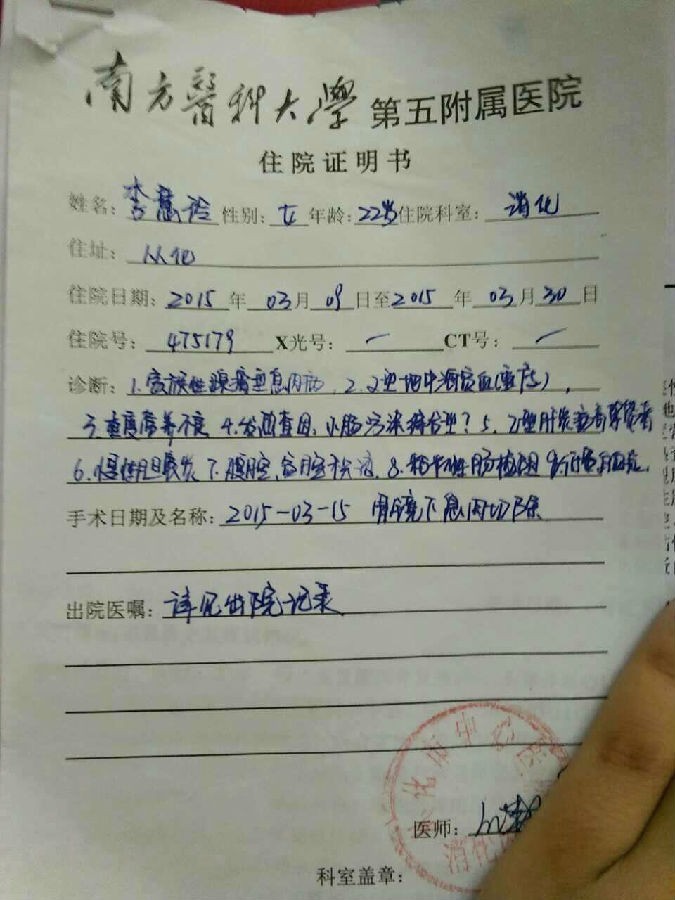 南方醫科大學 第五附属医院
住院证明书
姓名: 李慧玲 性别: 女 年龄: 22岁 住院科室: 消化
住址: 从化
住院日期: 2015 年 03 月 09 日至 2015 年 03 月 30 日
住院号: 475179 X光号: CT号:
诊断: 1.家族性腺瘤型息肉病, 2.地中海贫血
3.重度营养不良 4.发热查因: 小肠污染综合型? 5.乙型肝炎
6.慢性胆囊炎 7.腹腔、盆腔积液 8.不完全性肠梗阻
手术日期及名称: 2015-03-15 胃镜下息肉切除
出院医嘱: 详见出院记录
化市中心医
医师:
科室盖章: